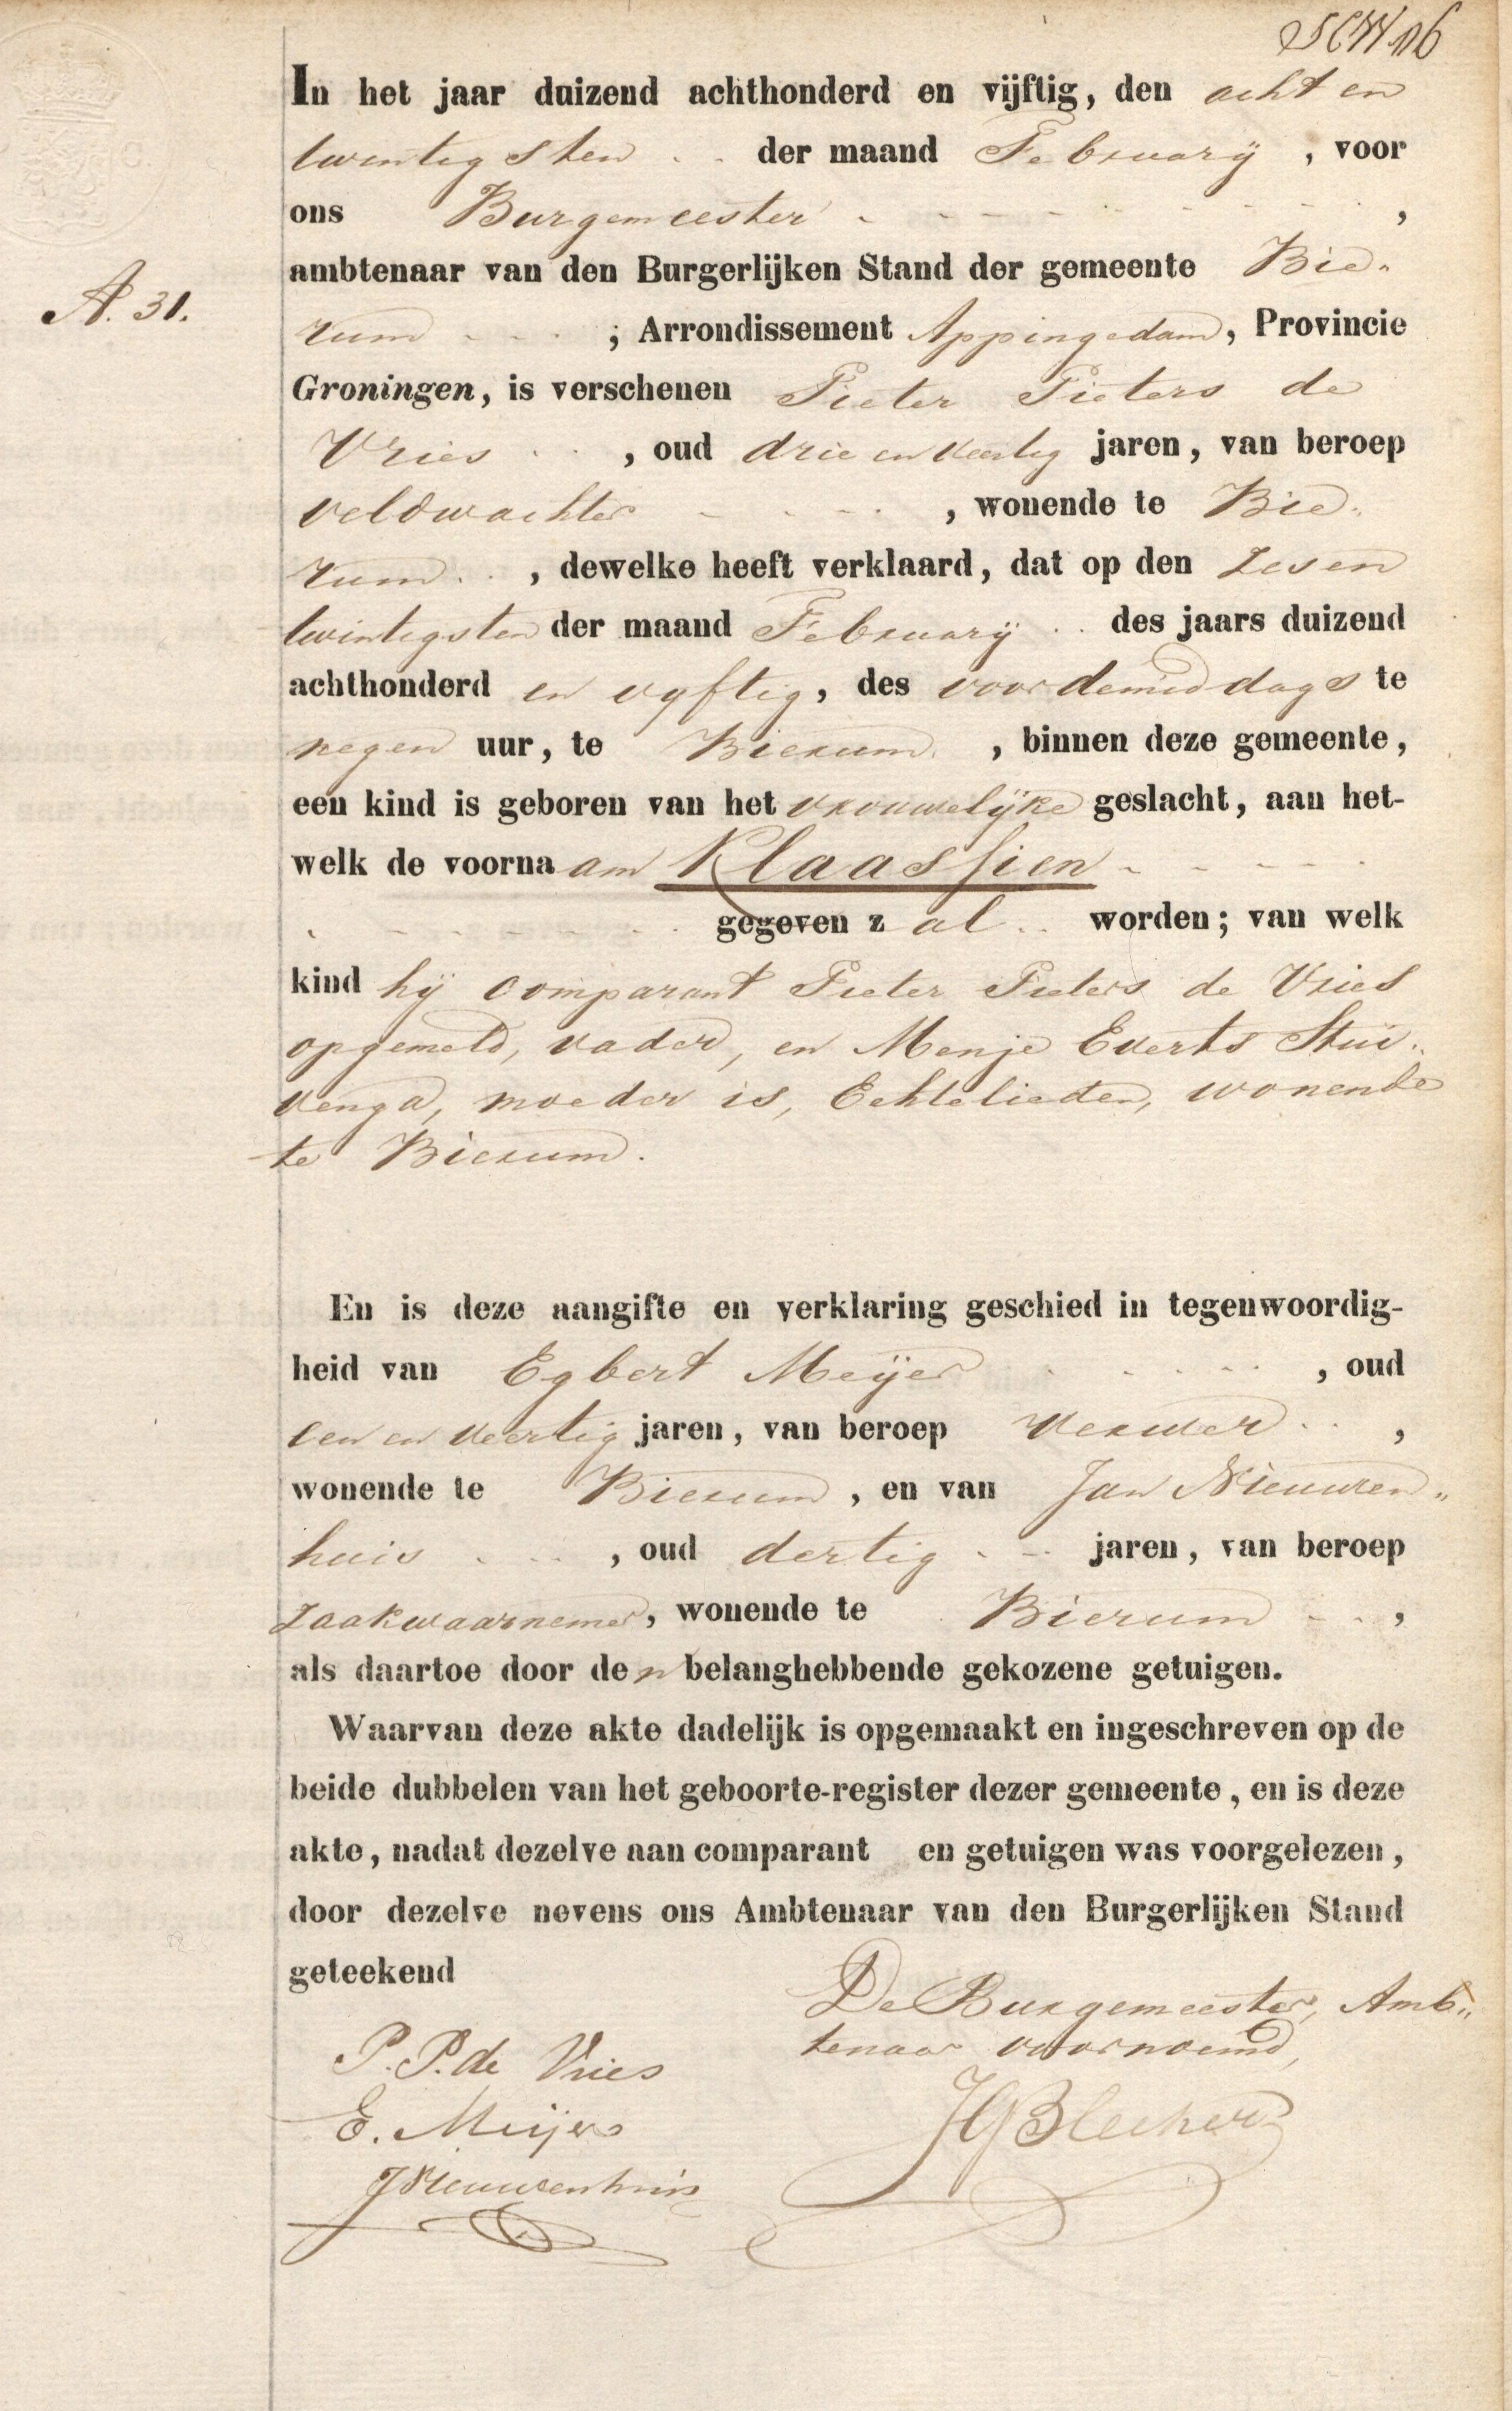 In het jaar duizend achthonderd en vijftig, den acht en
twintigsten - - der maand February , voor
ons Burgemeester - - - - - - - ,
ambtenaar van den Burgerlijken Stand der gemeente Bie-
rum - - - ; Arrondissement Appingedam, Provincie
Groningen, is verschenen Pieter Pieters de
Vries - - , oud drie en veertig jaren, van beroep
veldwachter - - - - , wonende te Bie-
rum - - , dewelke heeft verklaard, dat op den zes en
twintigsten der maand February - - des jaars duizend
achthonderd en vyftig, des voordemiddags te
negen uur, te Bierum , binnen deze gemeente,
een kind is geboren van het vrouwelijke geslacht, aan het-
welk de voornaam Klaassien - - - - -
- - - - - - - gegeven zal - - worden; van welk
kind hij comparant Pieter Pieters de Vries
opgemeld, vader, en Menje Everts Stui-
venga, moeder is, Echtelieden, wonende
te Bierum.
En is deze aangifte en verklaring geschied in tegenwoordig-
heid van Egbert Meijer - - - - - , oud
een en veertig jaren, van beroep verwer - - ,
wonende te Bierum , en van Jan Nieuwen-
huis - - - , oud dertig - - jaren, van beroep
zaakwaarnemer, wonende te Bierum - - ,
als daartoe door den belanghebbende gekozene getuigen.
Waarvan deze akte dadelijk is opgemaakt en ingeschreven op de
beide dubbelen van het geboorte-register dezer gemeente, en is deze
akte, nadat dezelve aan comparant en getuigen was voorgelezen,
door dezelve nevens ons Ambtenaar van den Burgerlijken Stand
geteekend
A. 31.
De Burgemeester, Amb-
tenaar voornoemd,
P. P. de Vries
E. Meijer
JNieuwenhuis